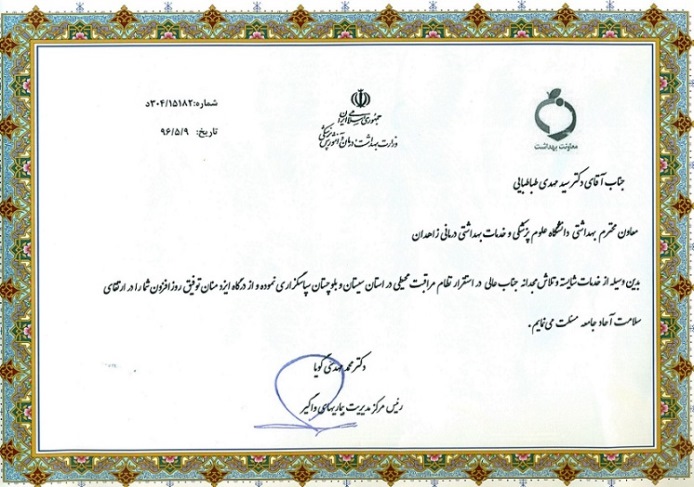 معاونت بهداشت
جمهوری اسلامی ایران
وزارت بهداشت، درمان و آموزش پزشکی
شماره:۳۰۴/۱۵۱۸۲د
تاریخ: ۹۶/۵/۹
جناب آقای دکتر سید مهدی طباطبایی
معاون محترم بهداشتی دانشگاه علوم پزشکی و خدمات بهداشتی درمانی زاهدان
بدین وسیله از خدمات شایسته و تلاش مجدانه جناب عالی در استقرار نظام مراقبت محیطی در استان سیستان و بلوچستان سپاسگزاری نموده و از درگاه ایزد منان توفیق روز افزون شما را در ارتقای
سلامت آحاد جامعه مسئلت می نمایم .
دکتر محمد مهدی گویا
رئیس مرکز مدیریت بیماریهای واگیر